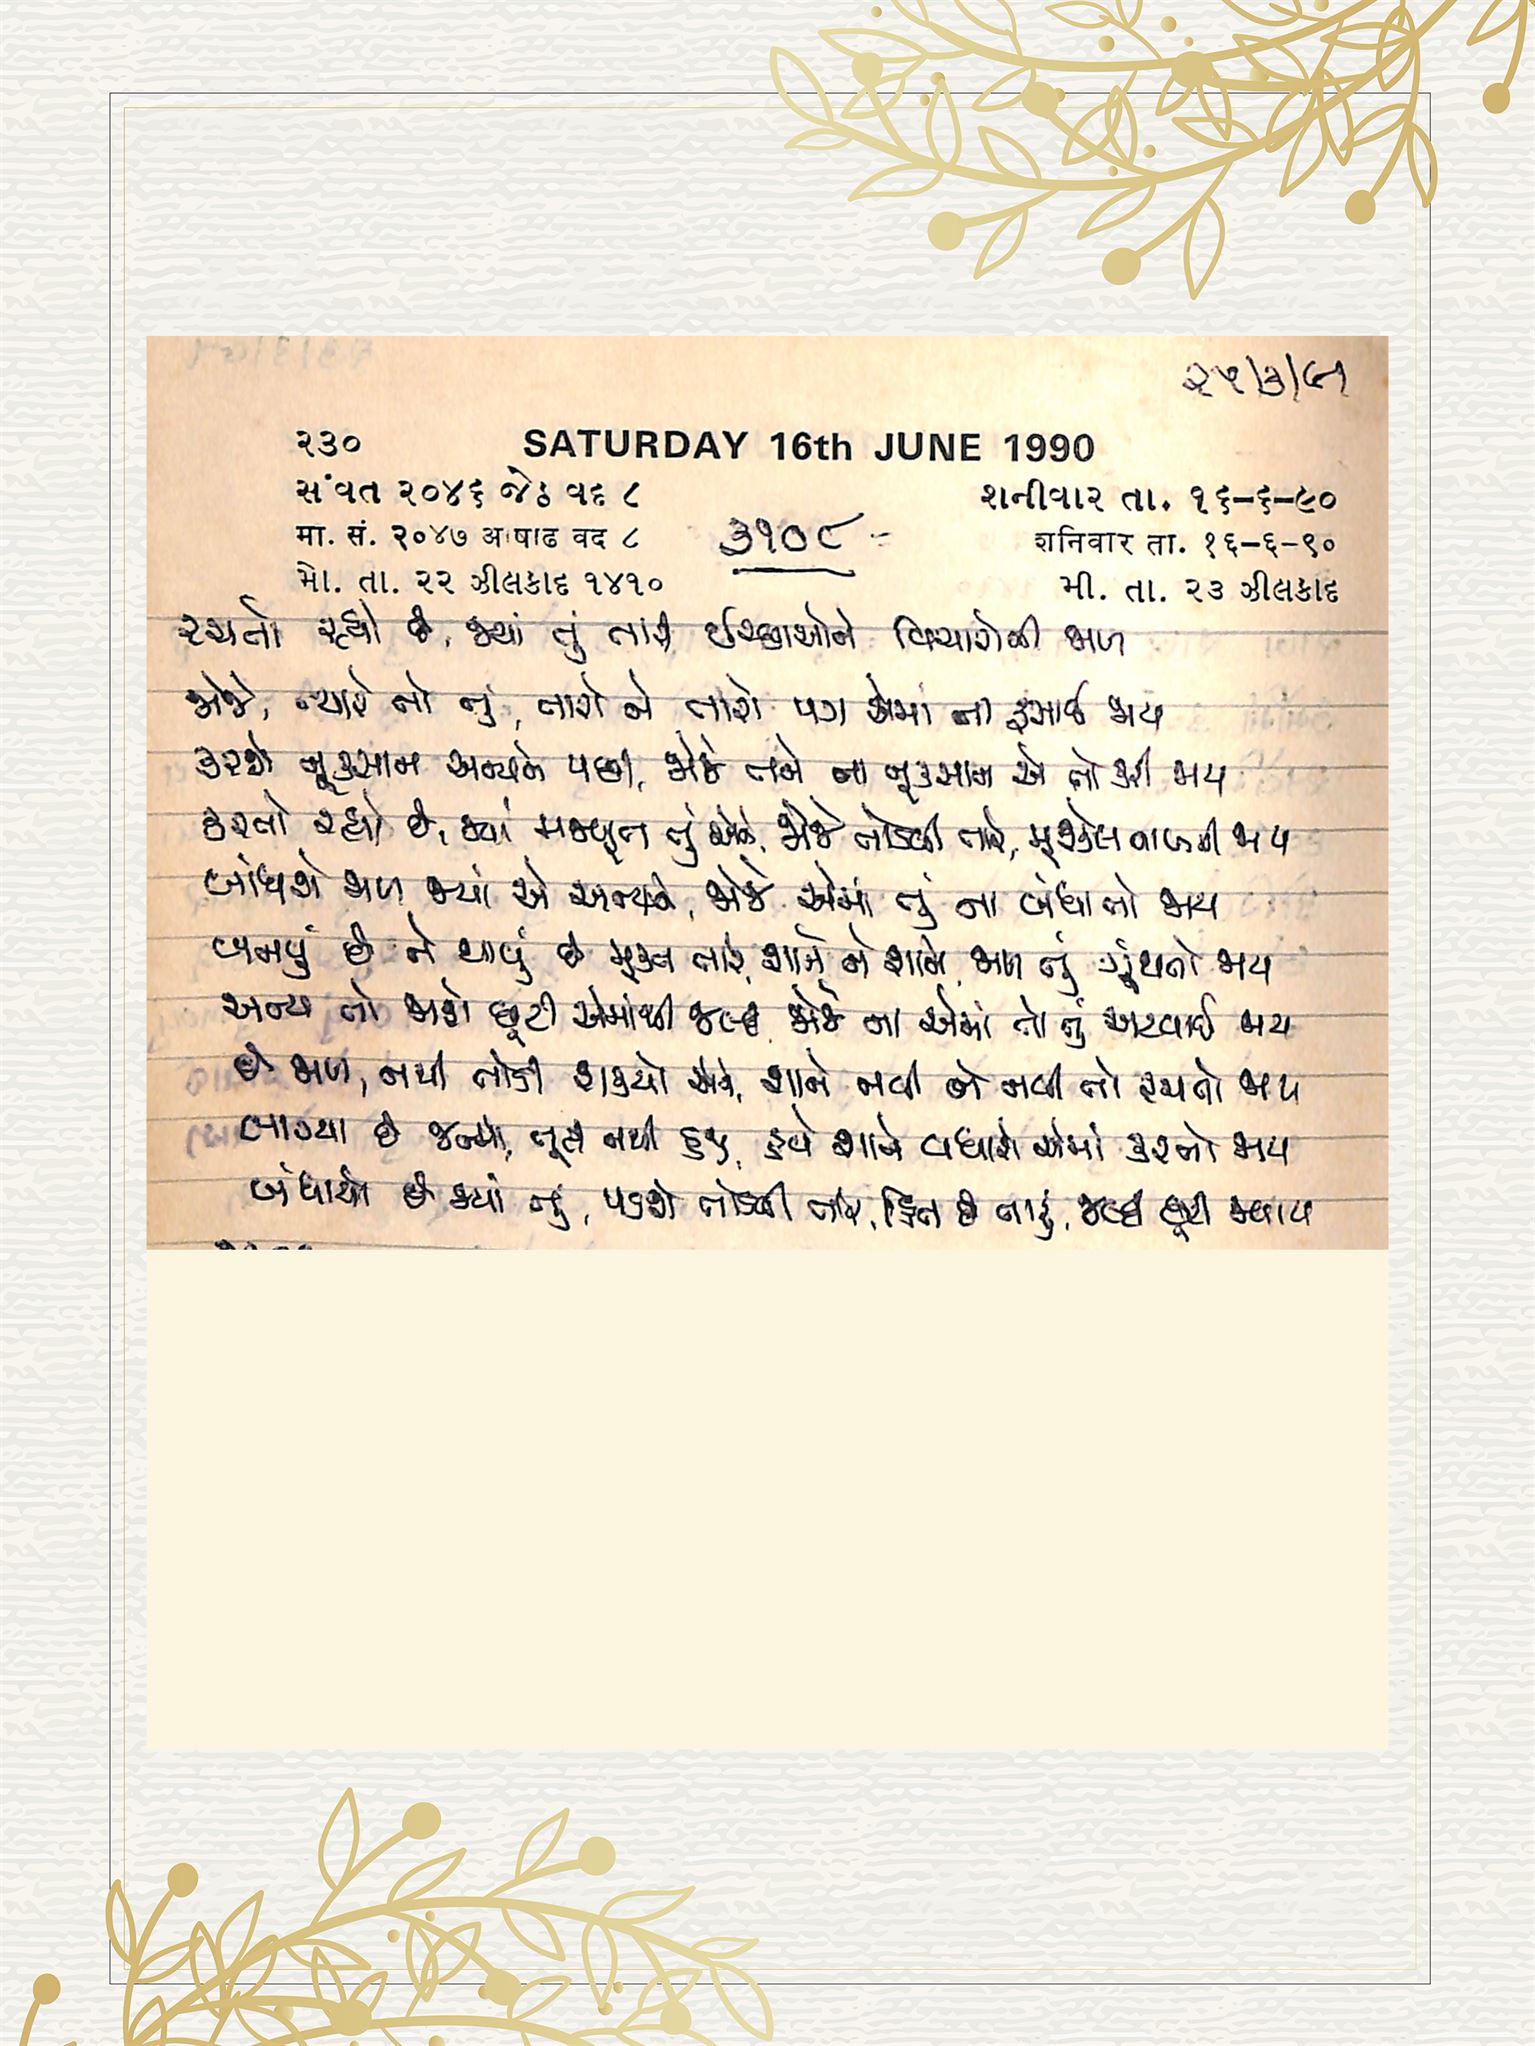 ૨૫/૩/૯૧
૨૩૦ SATURDAY 16th JUNE 1990
સંવત ૨૦૪૬ જેઠ વદ ૮ શનીવાર તા. ૧૬-૬-૯૦
मा. सं. २०४७ आषाढ वद ८ ૩૧૦૮ शनिवार ता. १६-६-९०
મો. તા. ૨૨ ઝીલકાદ ૧૪૧૦ મી. તા. ૨૩ ઝીલકાદ
રચતો રહ્યો છે, જ્યાં તું તારી ઈચ્છાઓને વિચારોની જાળ
જોજે, ત્યારે તો તું, તારો ને તારો પગ એમાં ના ફસાઈ જાય
કરશે નૂકસાન અન્યને પછી, જોજે તને ના નૂકસાન એ તો કરી જાય
કરતો રહ્યો છે, જ્યાં મજબૂત તું એને, જોજે તોડવી તારે, મૂશ્કેલ બની જાય
બાંધશે જાળ જ્યાં એ અન્યને, જોજે એમાં તું ના બંધાતો જાય
બનવું છે ને થાવું છે મૂક્ત તારે, શાને ને શાને, જાળ તું ગૂંથતો જાય
અન્ય તો જાશે છૂટી એમાંથી જલ્દી, જોજે ના એમાં તો તું અટવાઈ જાય
છે જાળ, નથી તોડી શક્યો એને, શાને નવી ને નવી તો રચતો જાય
લાગ્યા છે જન્મો, તૂટી નથી હજી, હવે શાને વધારો એમાં કરતો જાય
બંધાયો છે જ્યાં તું, પડશે તોડવી તારે, હિત છે તારું, જલ્દી છૂટી જવાય